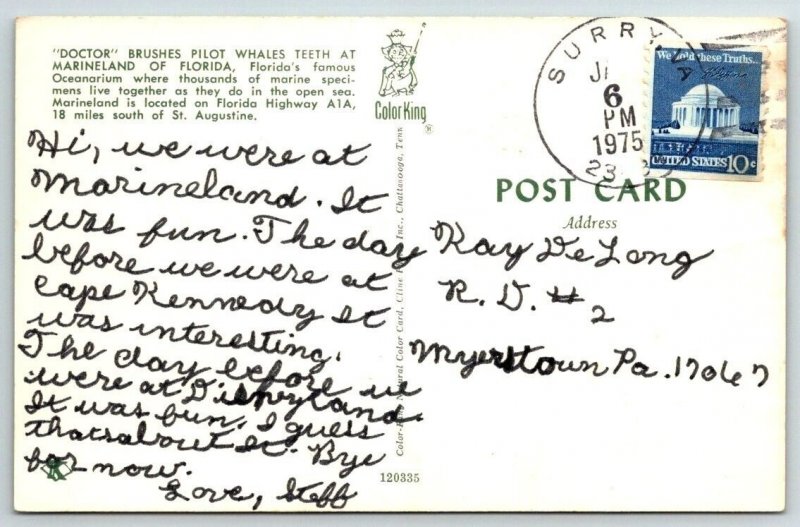 "DOCTOR" BRUSHES PILOT WHALES TEETH AT
MARINELAND OF FLORIDA, Florida's famous
Oceanarium where thousands of marine speci-
mens live together as they do in the open sea.
Marineland is located on Florida Highway A1A,
18 miles south of St. Augustine.
Color King
®
Hi, we were at
Marineland. It
was fun. The day
before we were at
Cape Kennedy It
was interesting.
The day before we
were at Disneyland.
It was fun. I guess
thats about It. Bye
for now.
Love, Steff
Natural Color Card, Cline
Inc., Chattanooga, Tenn
120335
SURRY, VA
6
PM
1975
We hold these Truths...
UNITED STATES 10c
POST CARD
Address
Kay De Long
R. D. # 2
Myerstown Pa. 17067